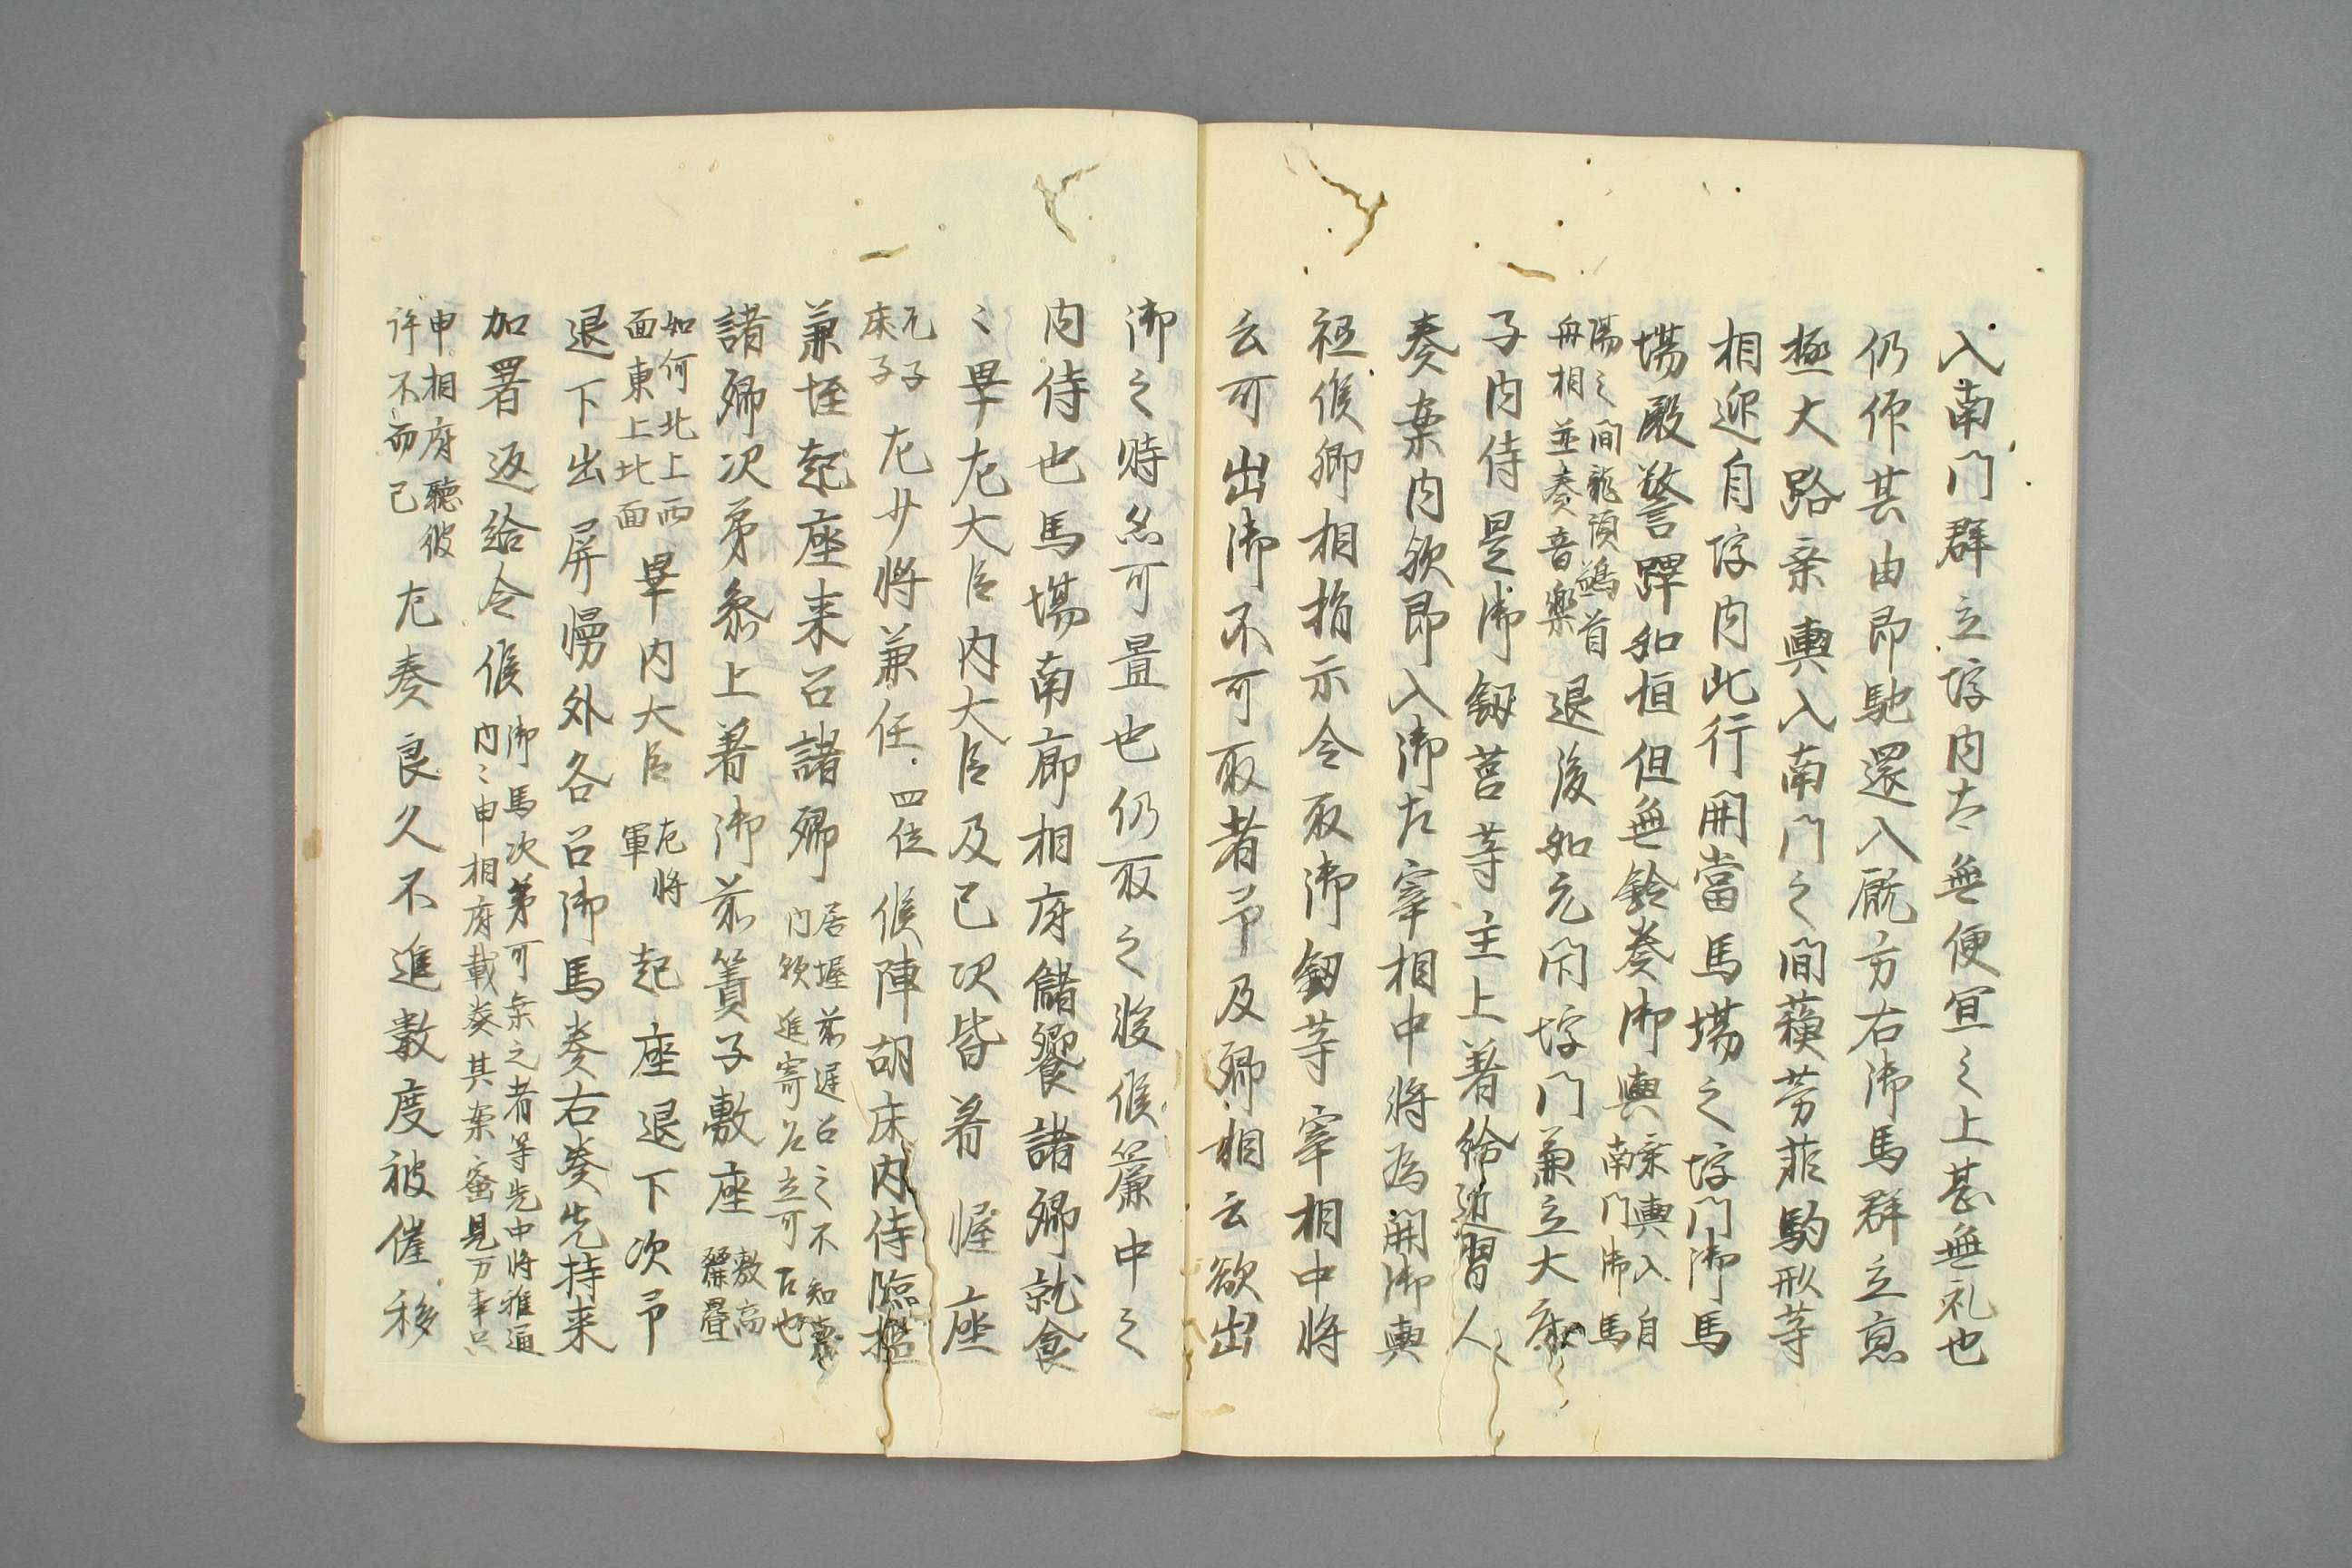 入南門群立埒内太無便宜之上甚無礼也
仍仰其由即馳還入厩方右御馬群立意
極大路乗輿入南門之間蘋芳菲駒形等
相迎自埒内此行開當馬場之埒門御馬
場殿警蹕如恒但無鈴奏御輿
乗輿入自
南門御馬
場之間龍頭鷁首
舟相並奏音樂
退後如元閇埒門兼立大床
子内侍置御釼筥等主上著給近習人
奏案内欤即入御左宰相中将為開御輿
祗候卿相指示令取御釼等宰相中将
云可出御不可取者予及卿相云欲出
御之時必可置也仍取之授候簾中之
内侍也馬場南廊相府儲饗諸卿就食
〻畢左大臣内大臣及已次皆着幄座
兀子
床子
左少将兼任
四位
候陣胡床内侍臨檻
兼埒起座来召諸卿
居握前遅召之不知
内欤進寄召立可召也
諸卿次第参上著御前簀子敷座
敷高
麗畳
如何北上西
面東上北面
畢内大臣
左将
軍
起座退下次予
退下出屏幔外各召御馬奏右奏先持来
加署返給令候
御馬次第可乗之者等先中将雅通
内〻申相府載奏其案密見
申相府聴彼
許不而已
左奏良久不進数度被催移